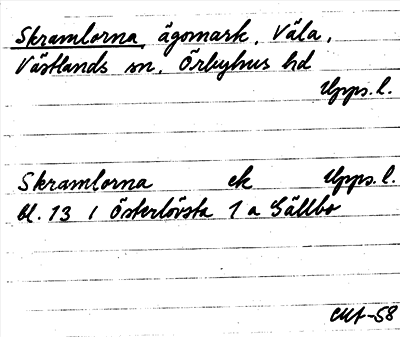 Skramlorna, ägomark, Väla,
Västlands sn, Örbyhus hd
Upps. l.
Skramlorna ek Upps. l.
bl. 13 / Österlövsta 1 a Gällbo
-58